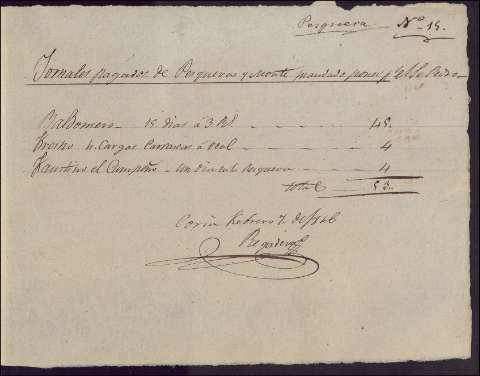 Pesquera Nº 15.
Jornales pagados de Pesqueras y Monte mandado poner p.r el S.r
Baldomero 15 dias á 3 Rs 45.
4 Cargas Carrascas á real 4
Faustino el Campiño un dia en la Pesquera 4
total 53.
Coria Febrero 7 de